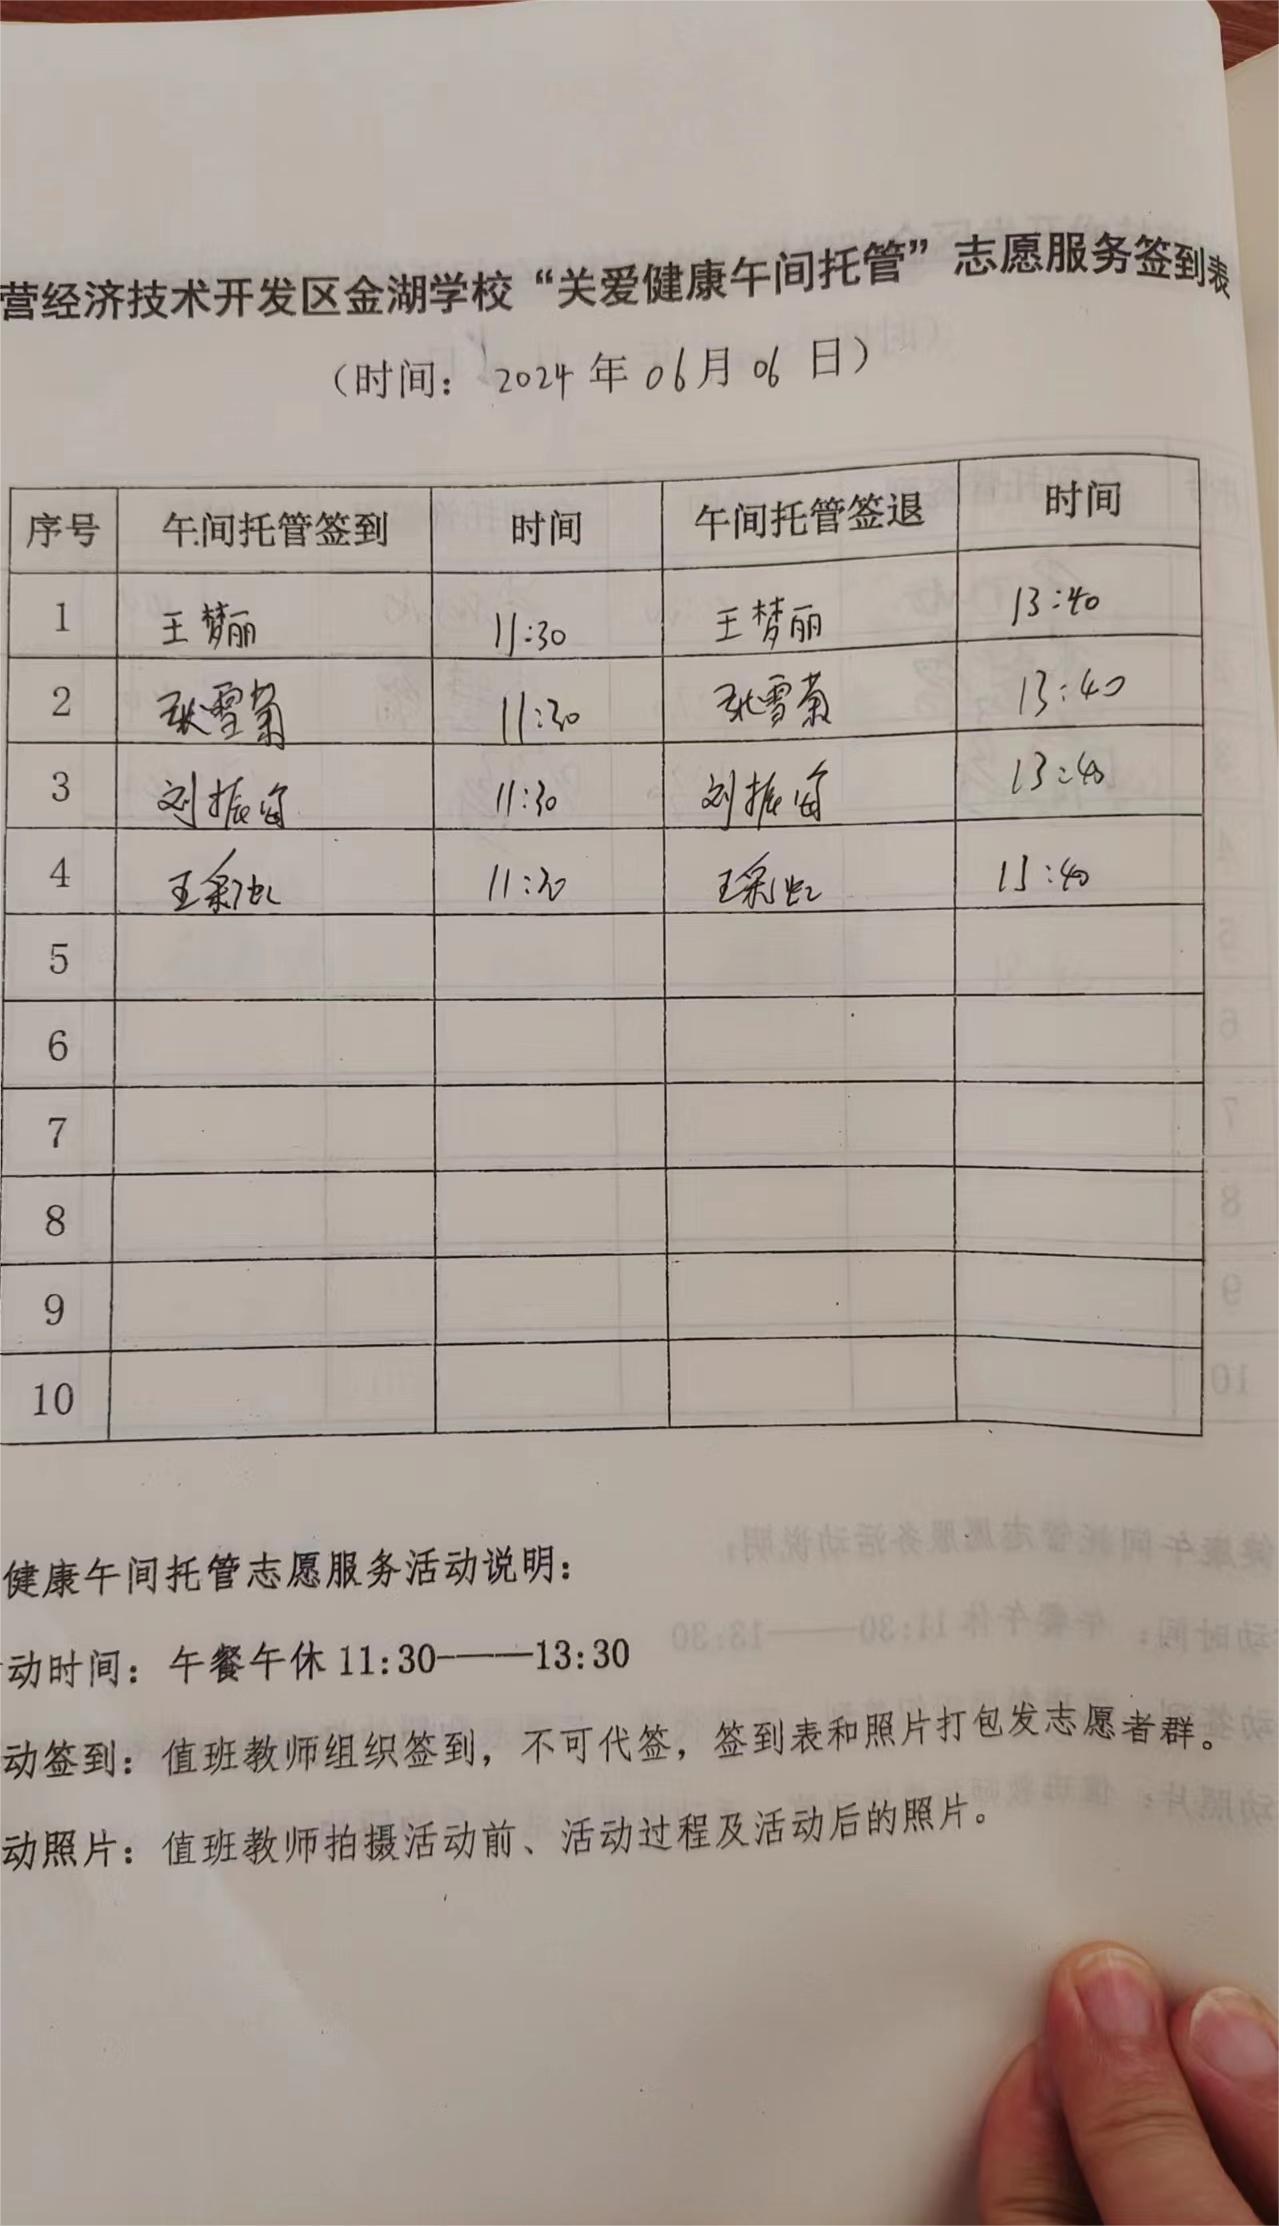 营经济技术开发区金湖学校“关爱健康午间托管”志愿服务签到表
（时间： 2024 年 06 月 06 日）
序号 午间托管签到 时间 午间托管签退 时间
1 王梦丽 11:30 王梦丽 13:40
2 雪菊 11:30 雪菊 13:40
3 刘振 11:30 刘振 13:40
4 王彩虹 11:30 王彩虹 13:40
5
6
7
8
9
10
健康午间托管志愿服务活动说明：
动时间：午餐午休 11:30———13:30
动签到：值班教师组织签到，不可代签，签到表和照片打包发志愿者群。
动照片：值班教师拍摄活动前、活动过程及活动后的照片。